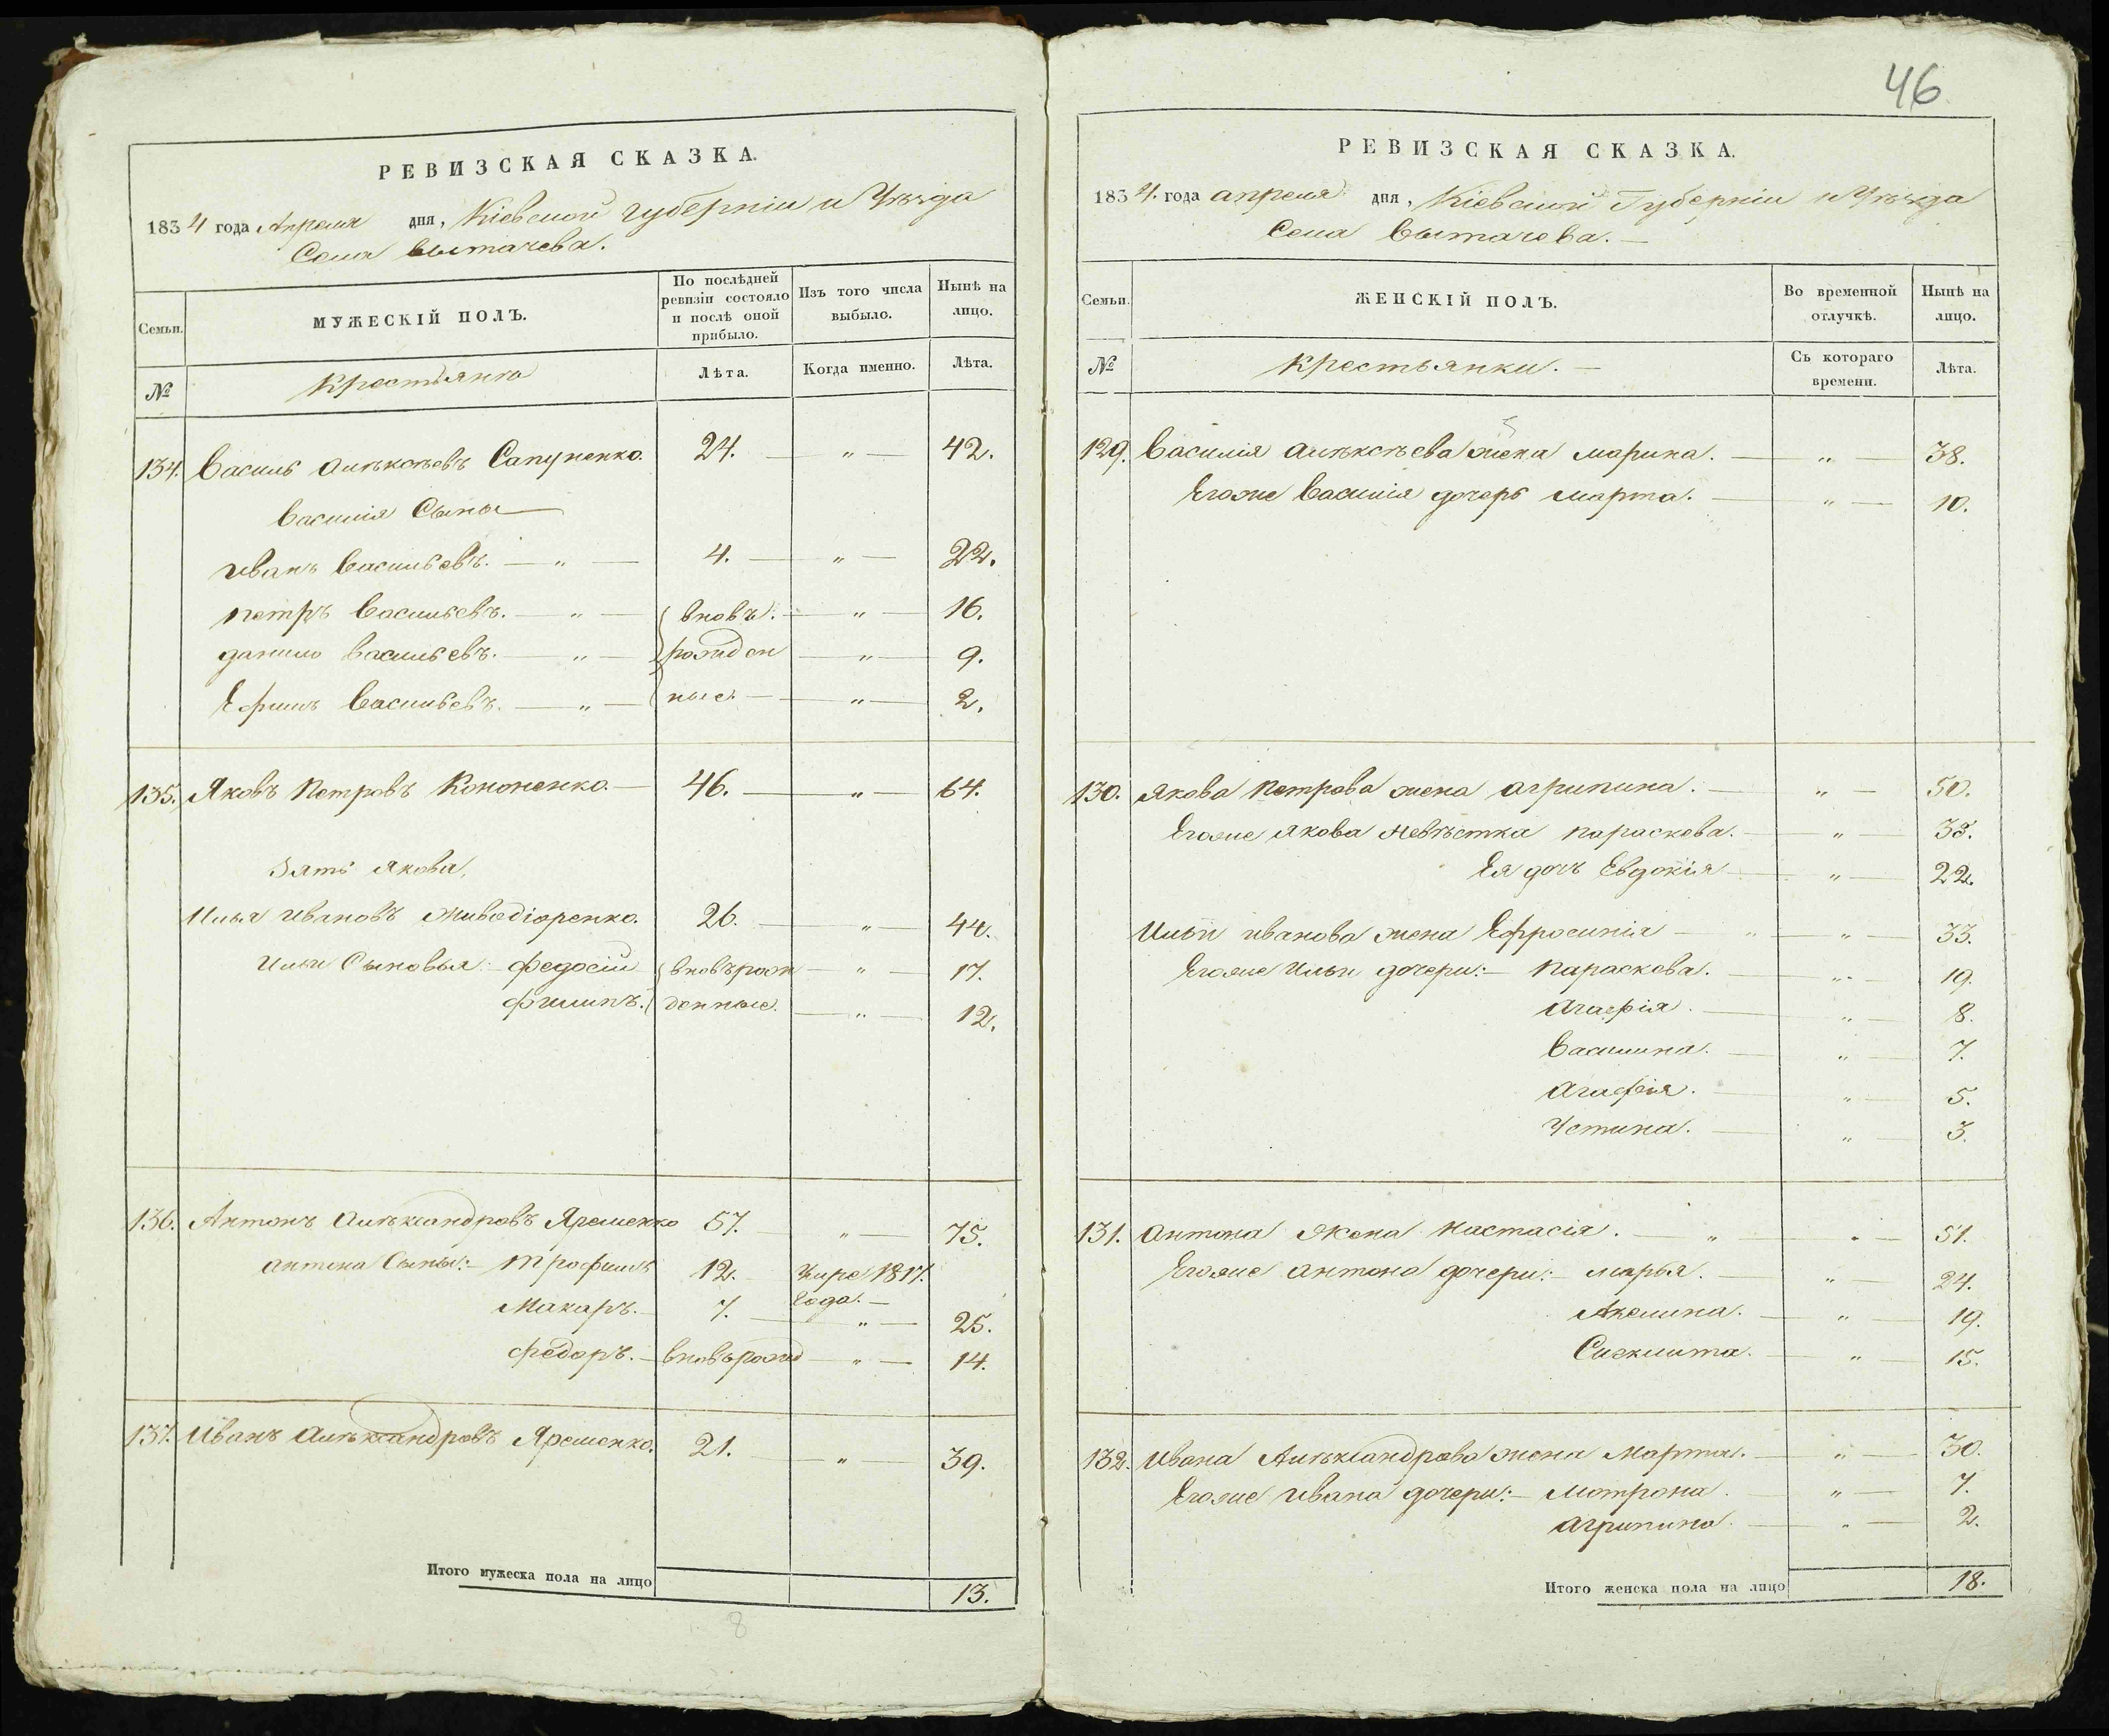 РЕВИЗСКАЯ СКАЗКА.
1834 года Апреля дня, Кіевской губерніи и Уѣзда
Села Вытачева.
Семьи.
МУЖЕСКІЙ ПОЛЪ.
По послѣдней ревизіи состояло и послѣ оной прибыло.
Изъ того числа выбыло.
Нынѣ на лицо.
№
Крестьяне
Лѣта.
Когда именно.
Лѣта.
134. Василь Алѣксѣевъ Сапуненко. 24. — „ — 42.
Василія Сыны
Иванъ Васильевъ. — „ — 4. — „ — 22.
Петръ Васильевъ. — „ — вновь. — „ — 16.
Данило Васильевъ. — „ — рожден — „ — 9.
Ефимъ Васильевъ. — „ — ные. — „ — 2.
135. Яковъ Петровъ Кононенко. — 46. — „ — 64.
Зять Якова,
Илья Ивановъ Живодіоренко. 26. — „ — 44.
Ильи Сыновья: Федосій вновьрож — „ — 17.
Филипъ. денные. — „ — 12.
136. Антонъ Алѣксандровъ Яременко 57. — „ — 75.
Антона Сыны:- Трофимъ 12. Умре 1817.
года. —
Макаръ. — 7. — „ — 25.
Федоръ. — вновьрожд — „ — 14.
137. Иванъ Алѣксандровъ Яременко. 21. — „ — 39.
Итого мужеска пола на лицо 13.
8
46
РЕВИЗСКАЯ СКАЗКА.
1834. года апреля дня, Кіевской Губерніи и Уѣзда
Села Вытачева. —
Семьи.
ЖЕНСКІЙ ПОЛЪ.
Во временной отлучкѣ.
Нынѣ на лицо.
№
Крестьянки. —
Съ котораго времени.
Лѣта.
129. Василія Алѣксѣева жена Марина. — „ — 38.
Егоже Василія дочерь Марта. — „ — 10.
130. Якова Петрова жена Агрипина. — „ — 50.
Егоже Якова невѣстка Параскева. — „ — 38.
Ея дочь Евдокія — „ — 22.
Ильи Иванова жена Ефросинія — „ — „ — 33.
Егоже Ильи дочери:- Параскева. — „ — 19.
Агафія. — „ — 8.
Василина. — „ — 7.
Агафія. — „ — 5.
Устина. — „ — 3.
131. Антона Жена Настасія. — „ — „ — 51.
Егоже Антона дочери:- Марья. — „ — 24.
Акелина. — „ — 19.
— „ — 15.
132. Ивана Алѣксандрова жена Марта. — „ — 30.
Егоже Ивана дочери:- Мотрона. — „ — 7.
Агрипина. — „ — 2.
Итого женска пола на лицо 18.